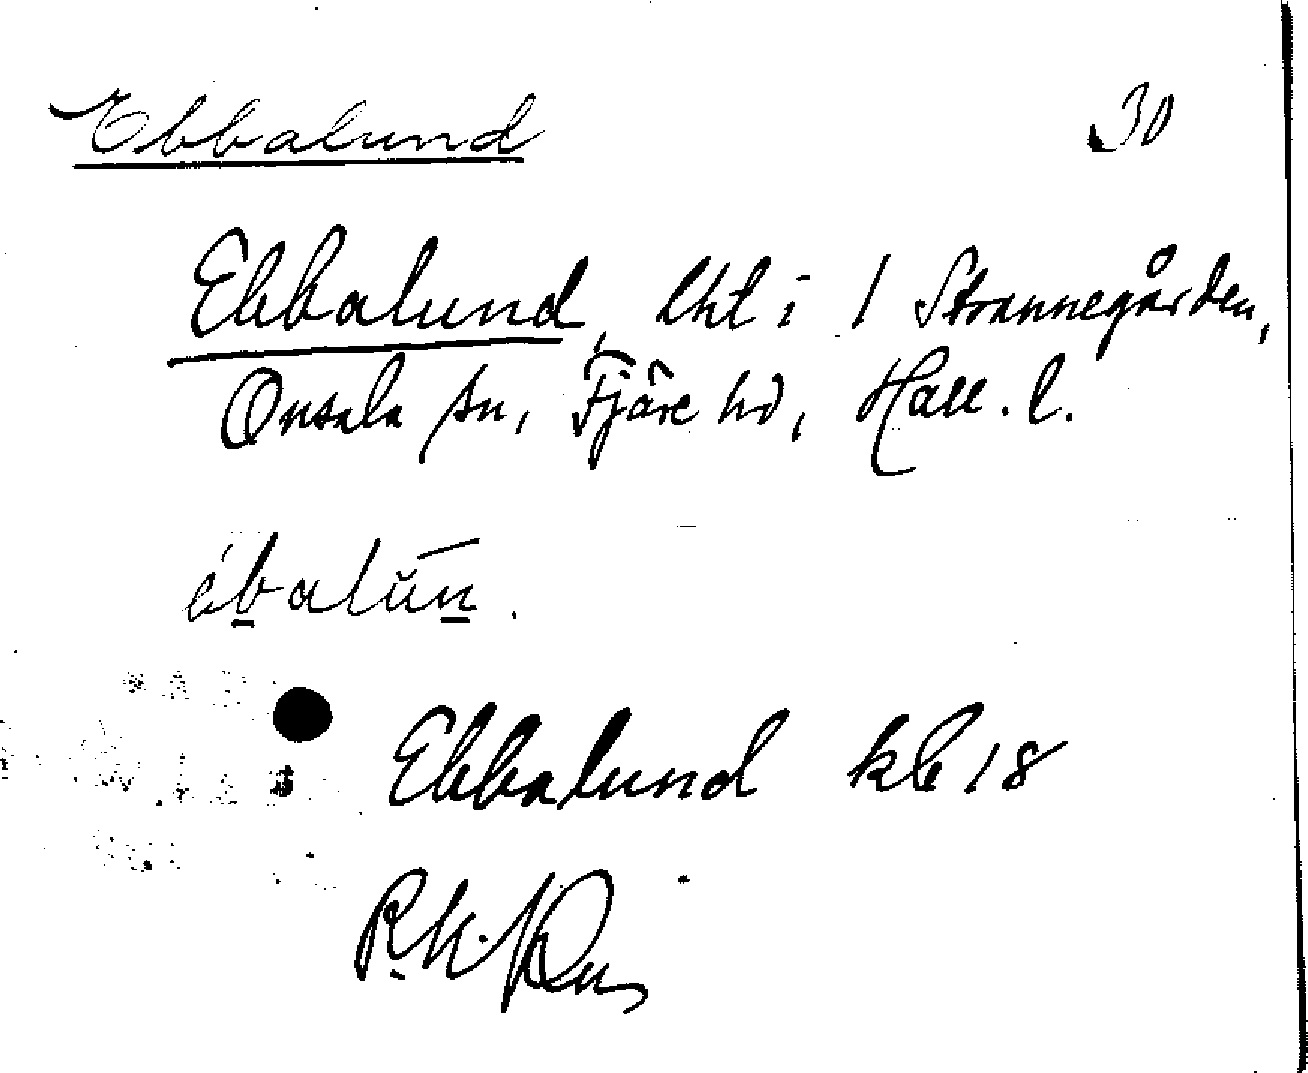 Ebbalund 30
Ebbalund, lht i 1 Strannegården,
Onsala sn, Fjäre hd, Hall. l.
Ebbalund kb 18